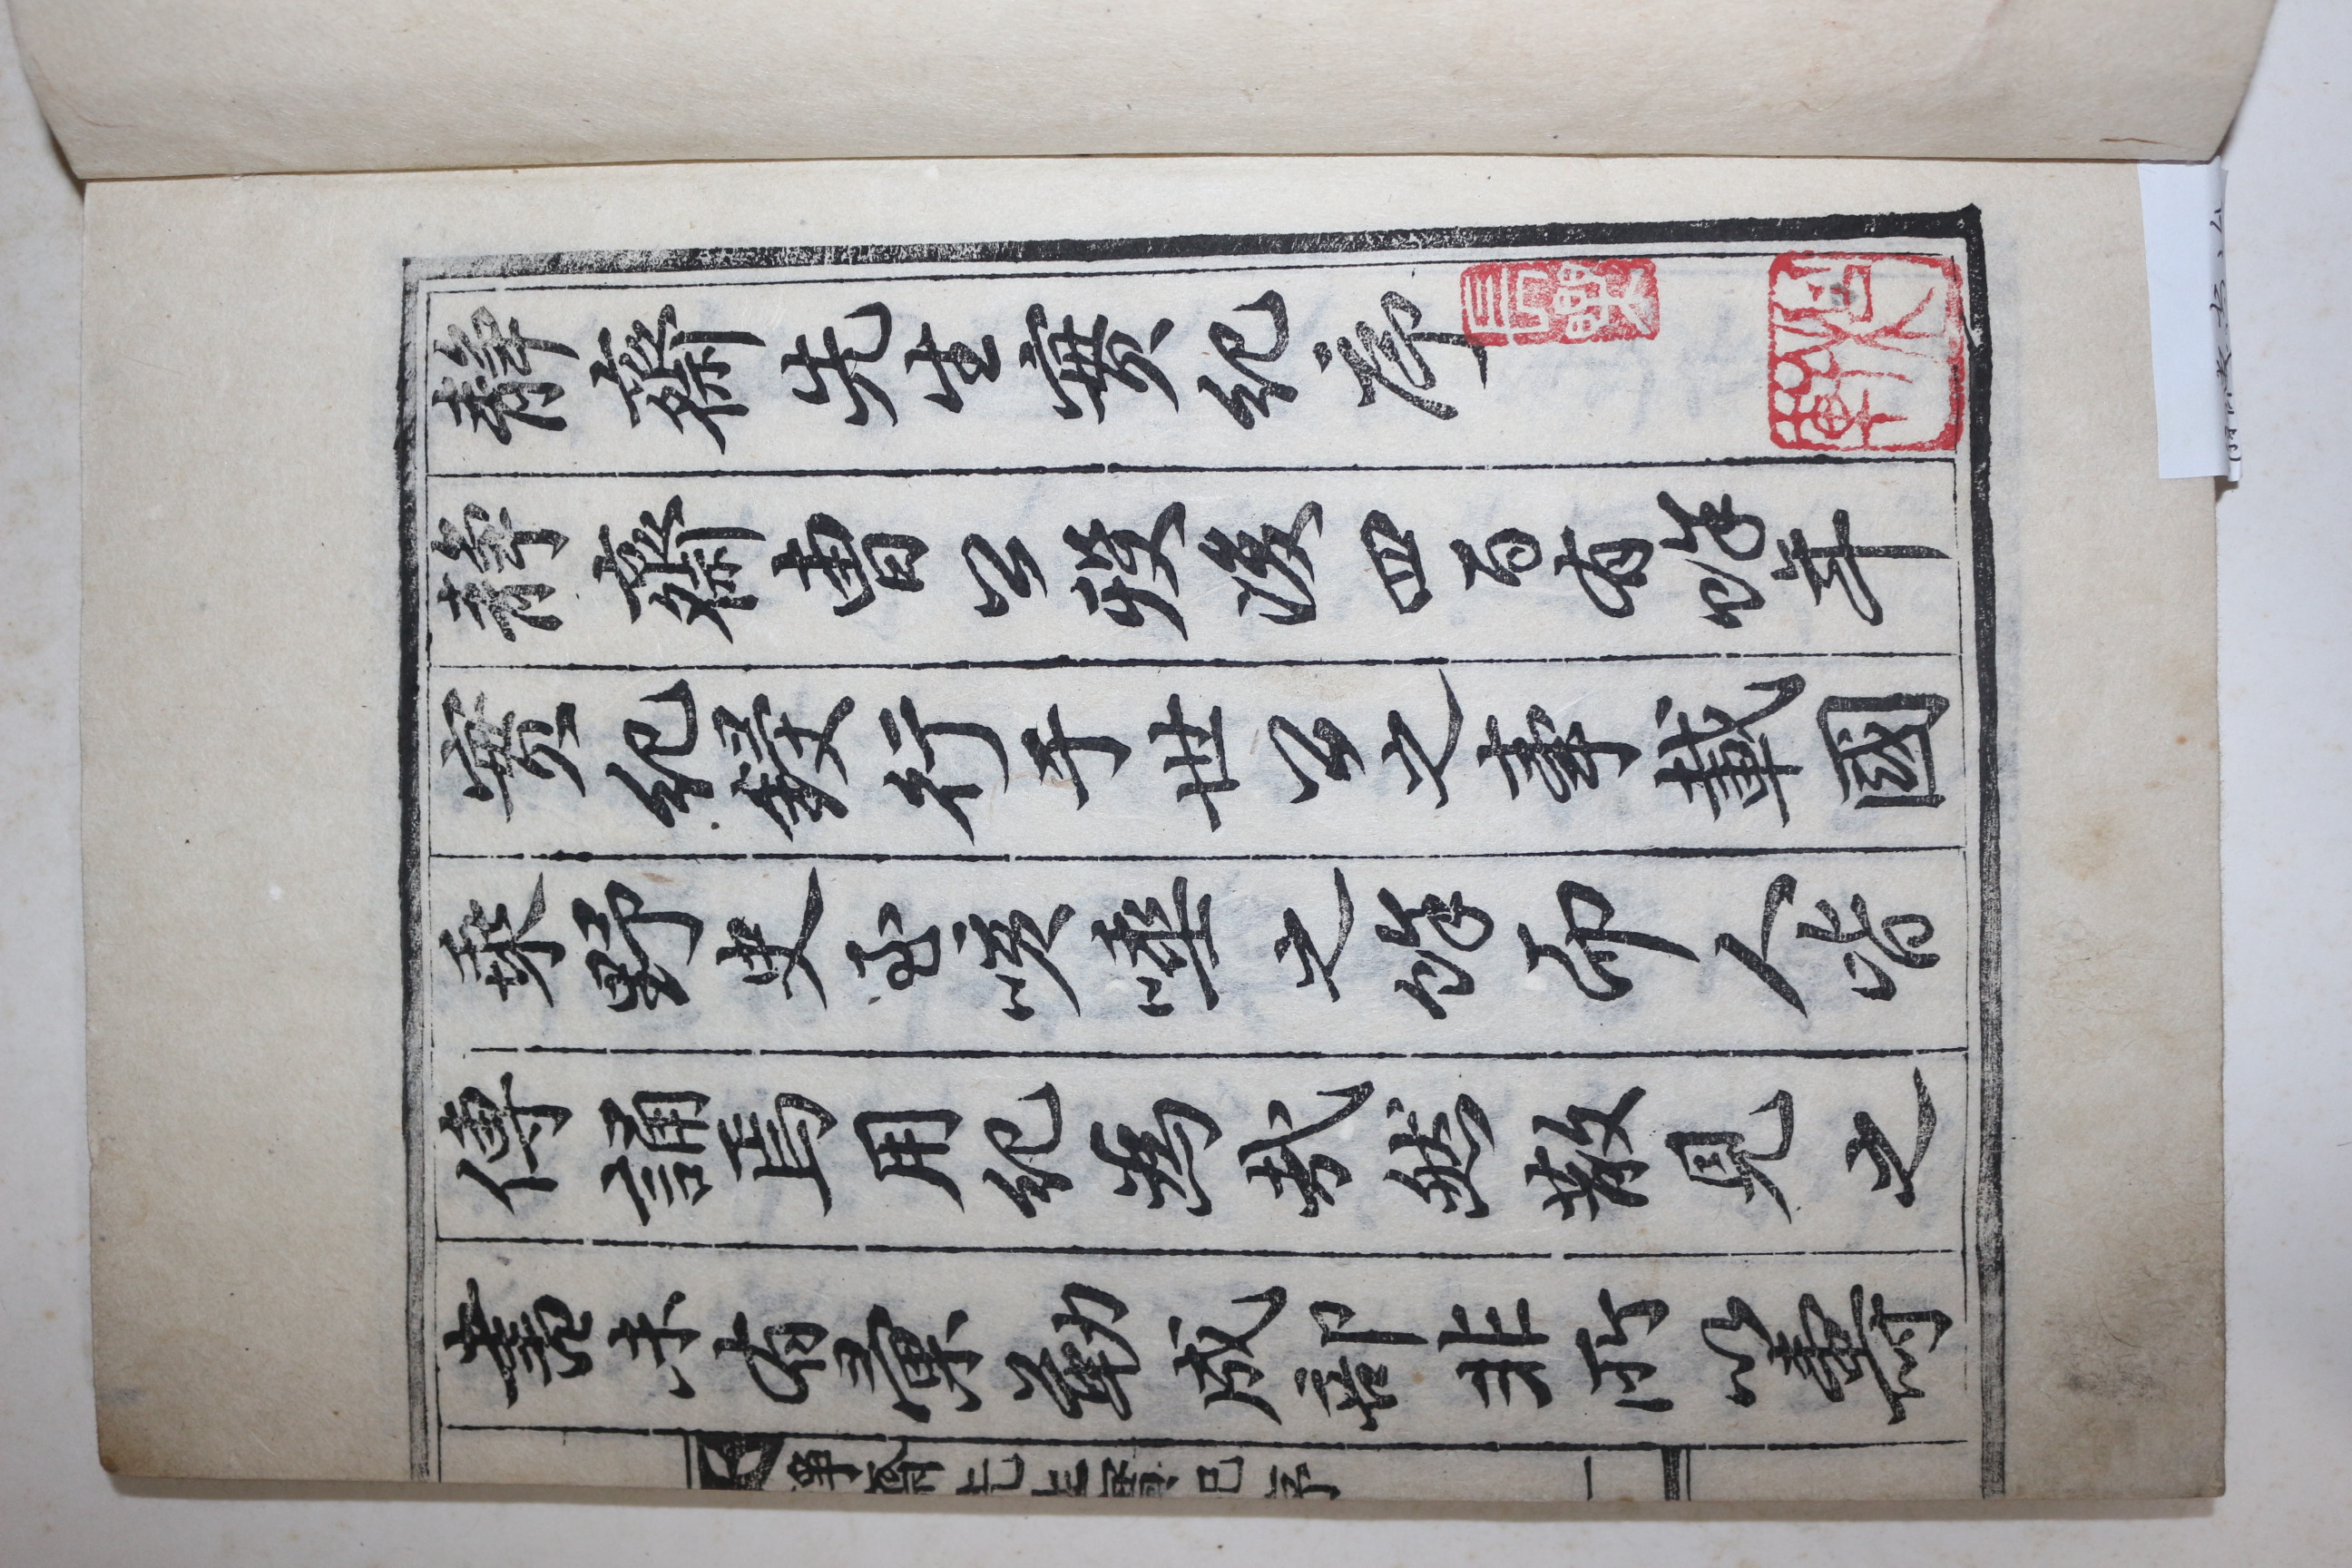 靜齋先生實紀序
靜齋曹公歿後四百有餘年
實紀鋟行于世公之事載國
乘野史至咳唾之餘而人皆
傳誦焉用紀為哉然散見之
書未有彙勒成部非所以壽
靜齋先生實紀序
一